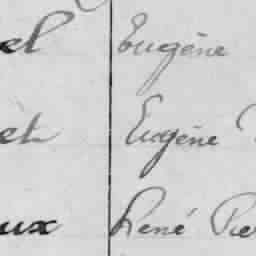 el Eugène
et Eugène
ux René Pie